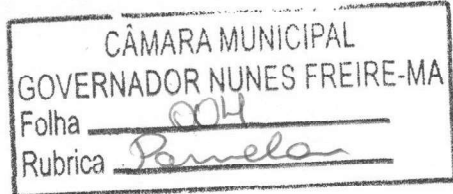 CÂMARA MUNICIPAL
GOVERNADOR NUNES FREIRE-MA
Folha 004
Rubrica Pamela